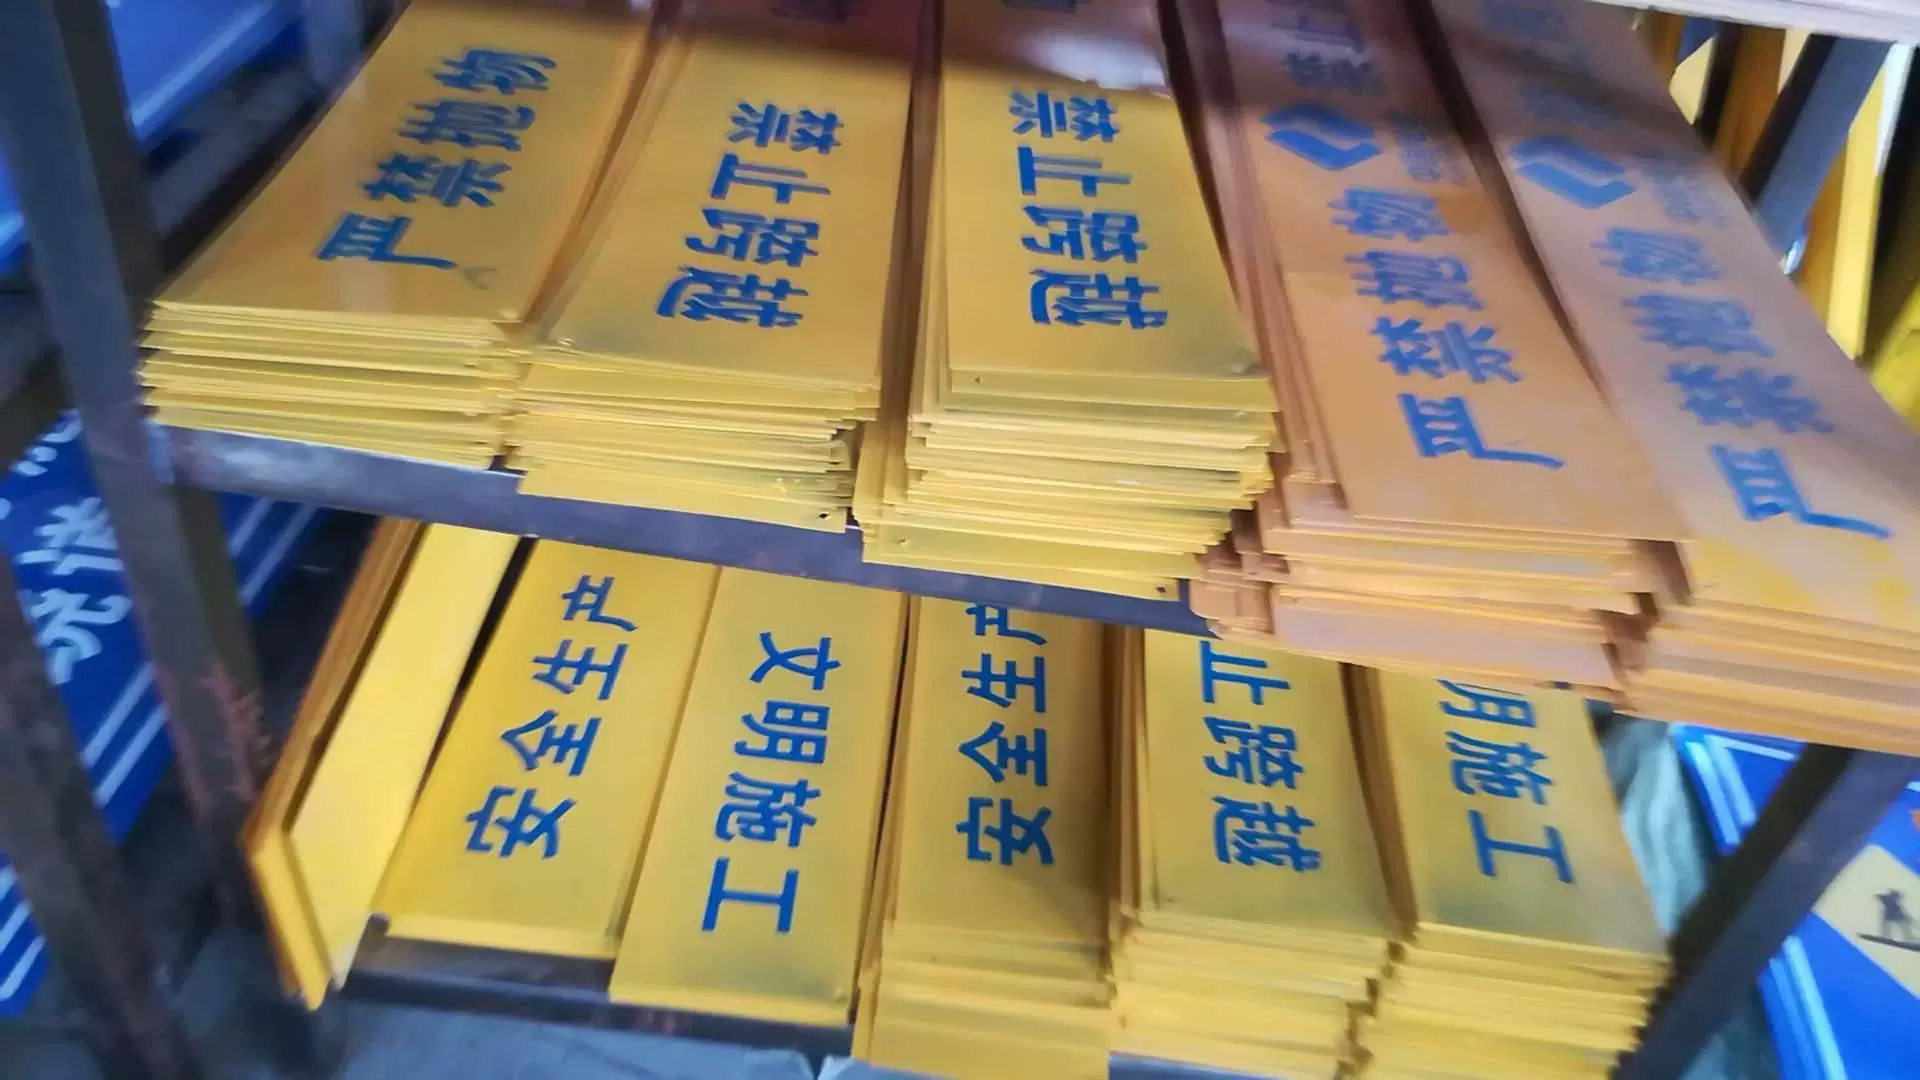 严禁抛物
禁止跨越
禁止跨越
严禁抛物
禁
严禁抛物
安全生产
文明施工
安全生产
止跨越
明施工